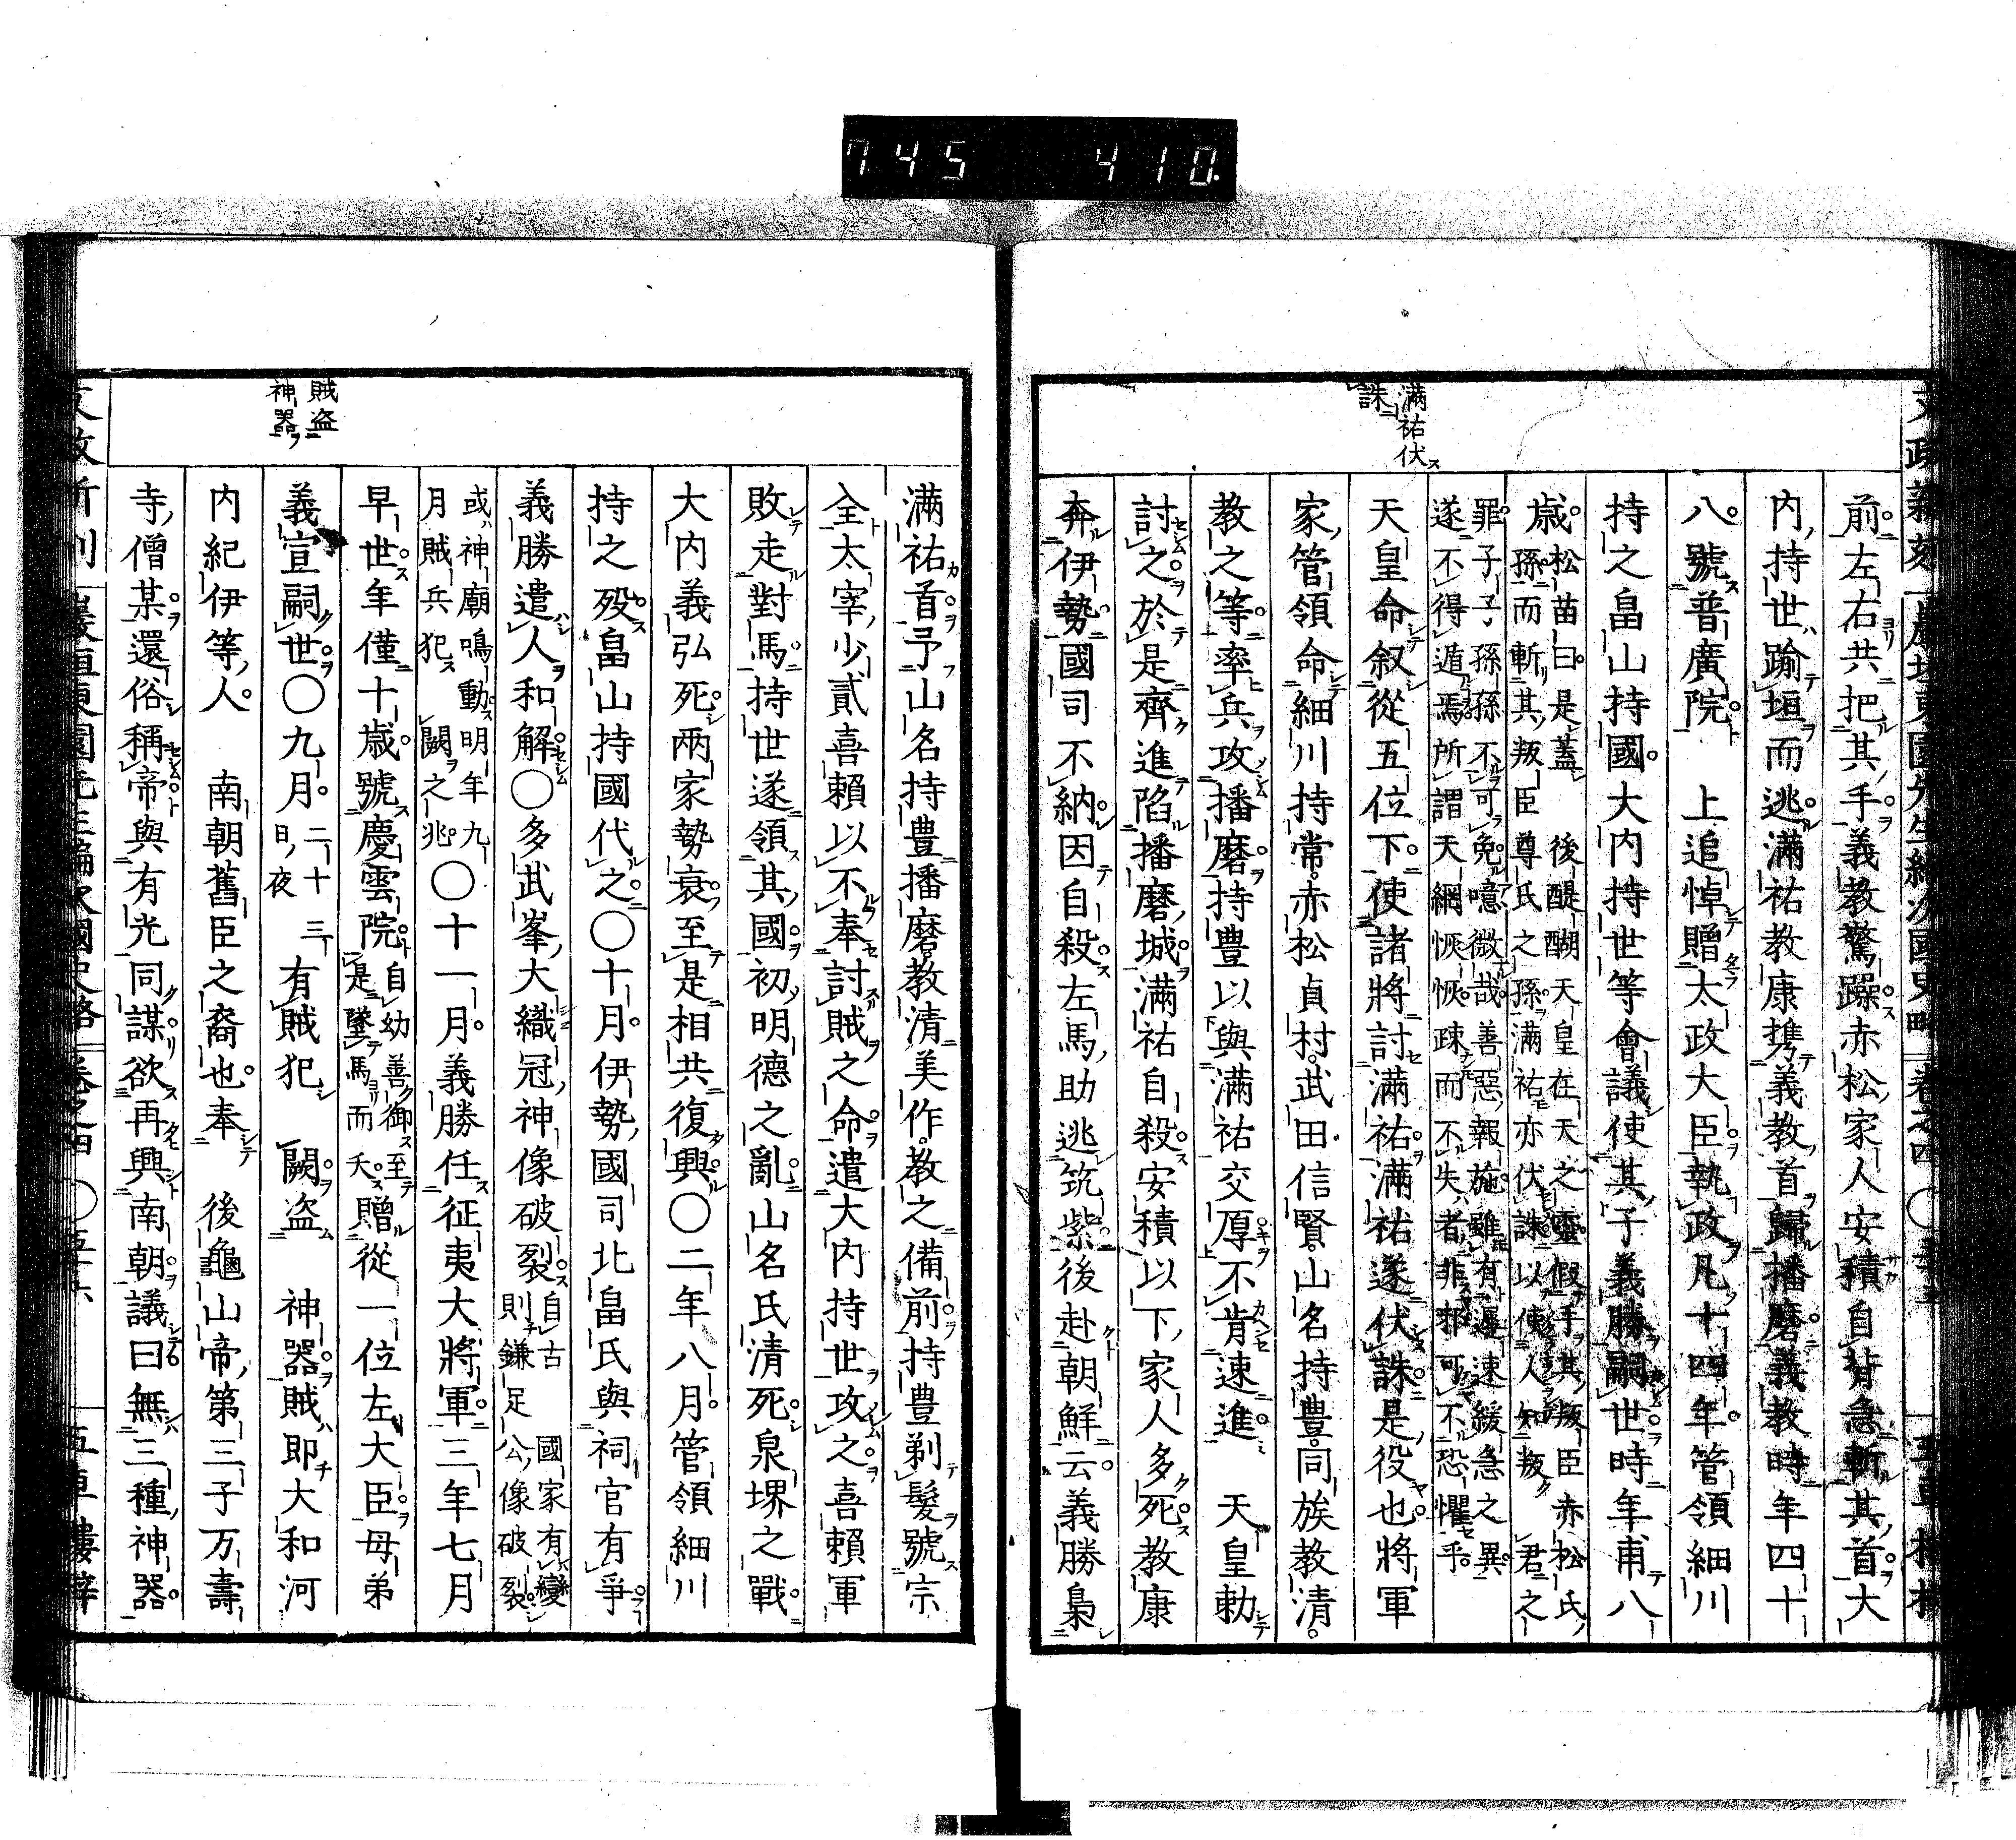 745 410
滿祐伏
誅
前左右共把其手義教驚躁赤松家人安積自背急斬其首大
内持世踰垣而逃滿祐教康携義教首歸播磨義教時年四十
八號普廣院 上追悼贈太政大臣執政凡十四年管領細川
持之畠山持國大内持世等會議使其子義勝嗣世時年甫八
歳松苗曰是蓋 後醍醐天皇在天之靈假手其叛臣赤松氏
孫而斬其叛臣尊氏之孫滿祐亦伏誅以使人知叛 君之
罪子子孫孫不可免噫微哉善惡報施雖有遲速緩急之異
遂不得遁焉所謂天網恢恢疎而不失者非邪可不恐懼乎
天皇命叙從五位下使諸將討滿祐滿祐遂伏誅是役也將軍
家管領命細川持常赤松貞村武田信賢山名持豊同族教清
教之等率兵攻播磨持豊以與滿祐交厚不肯速進 天皇勅
討之於是齊進陷播磨城滿祐自殺安積以下家人多死教康
奔伊勢國司不納因自殺左馬助逃筑紫後赴朝鮮云義勝梟
賊盗
神器
滿祐首予山名持豊播磨教清美作教之備前持豊剃髮號宗
全太宰少貳喜頼以不奉討賊之命遣大内持世攻之喜頼軍
敗走對馬持世遂領其國初明德之亂山名氏清死泉堺之戰
大内義弘死兩家勢衰至是相共復興〇二年八月管領細川
持之歿畠山持國代之〇十月伊勢國司北畠氏與祠官有爭
義勝遣人和解〇多武峯大織冠神像破裂自古 國家有變
則鎌足公像破裂
或神廟鳴動明年九
月賊兵犯 闕之兆〇十一月義勝任征夷大將軍三年七月
早世年僅十歳號慶雲院自幼善御至
是墜馬而夭贈從一位左大臣母弟
義宣嗣世〇九月二十三
日夜有賊犯 闕盗 神器賊即大和河
内紀伊等人 南朝舊臣之裔也奉 後龜山帝第三子万壽
寺僧某還俗稱帝與有光同謀欲再興南朝議曰無三種神器